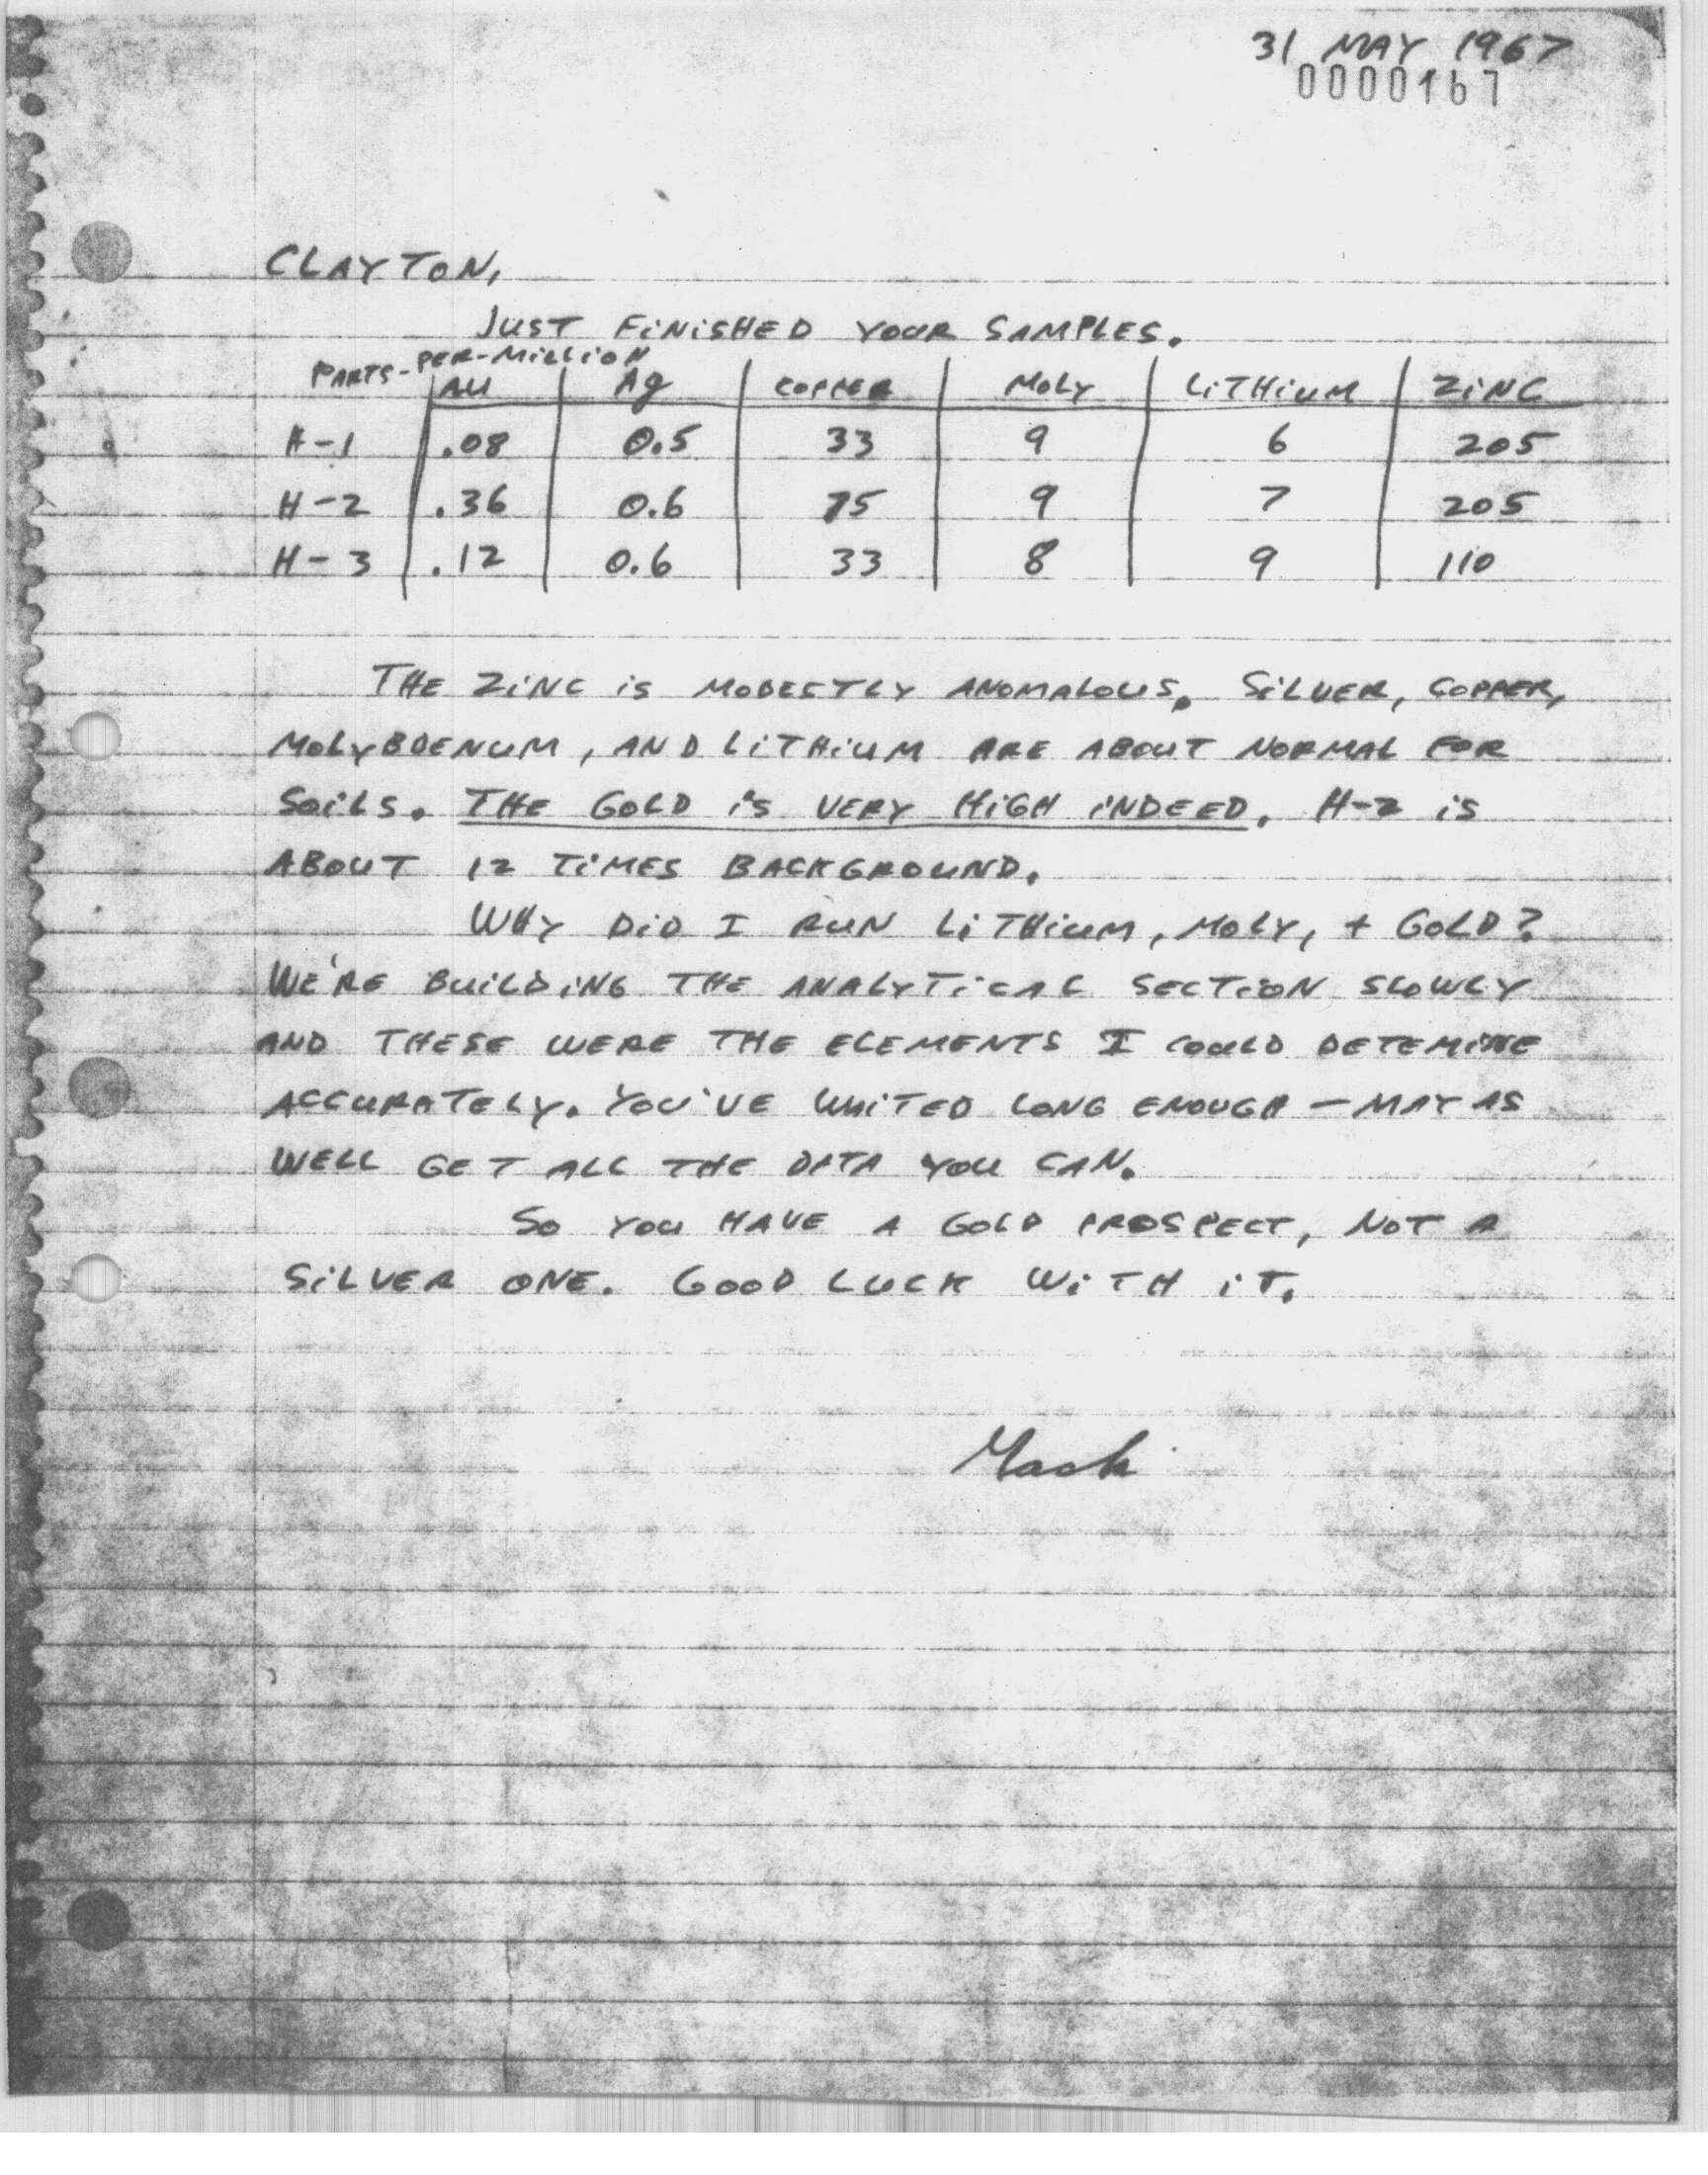 31 MAY 1967
0000167
CLAYTON,
JUST FINISHED YOUR SAMPLES.
PARTS-PER-MILLION
AU Ag COPPER MOLY LITHIUM ZINC
H-1 .08 0.5 33 9 6 205
H-2 .36 0.6 9 7 205
H-3 .12 0.6 33 8 9 110
THE ZINC IS MODESTLY ANOMALOUS. SILVER, COPPER,
MOLYBDENUM, AND LITHIUM ARE ABOUT NORMAL FOR
SOILS. THE GOLD IS VERY HIGH INDEED. H-2 IS
ABOUT 12 TIMES BACKGROUND.
WHY DID I RUN LITHIUM, MOLY, + GOLD?
WE'RE BUILDING THE ANALYTICAL SECTION SLOWLY
AND THESE WERE THE ELEMENTS I COULD DETEMINE
ACCURATELY. YOU'VE WAITED LONG ENOUGH - MAY AS
WELL GET ALL THE DATA YOU CAN.
SO YOU HAVE A GOLD PROSPECT, NOT A
SILVER ONE. GOOD LUCK WITH IT.